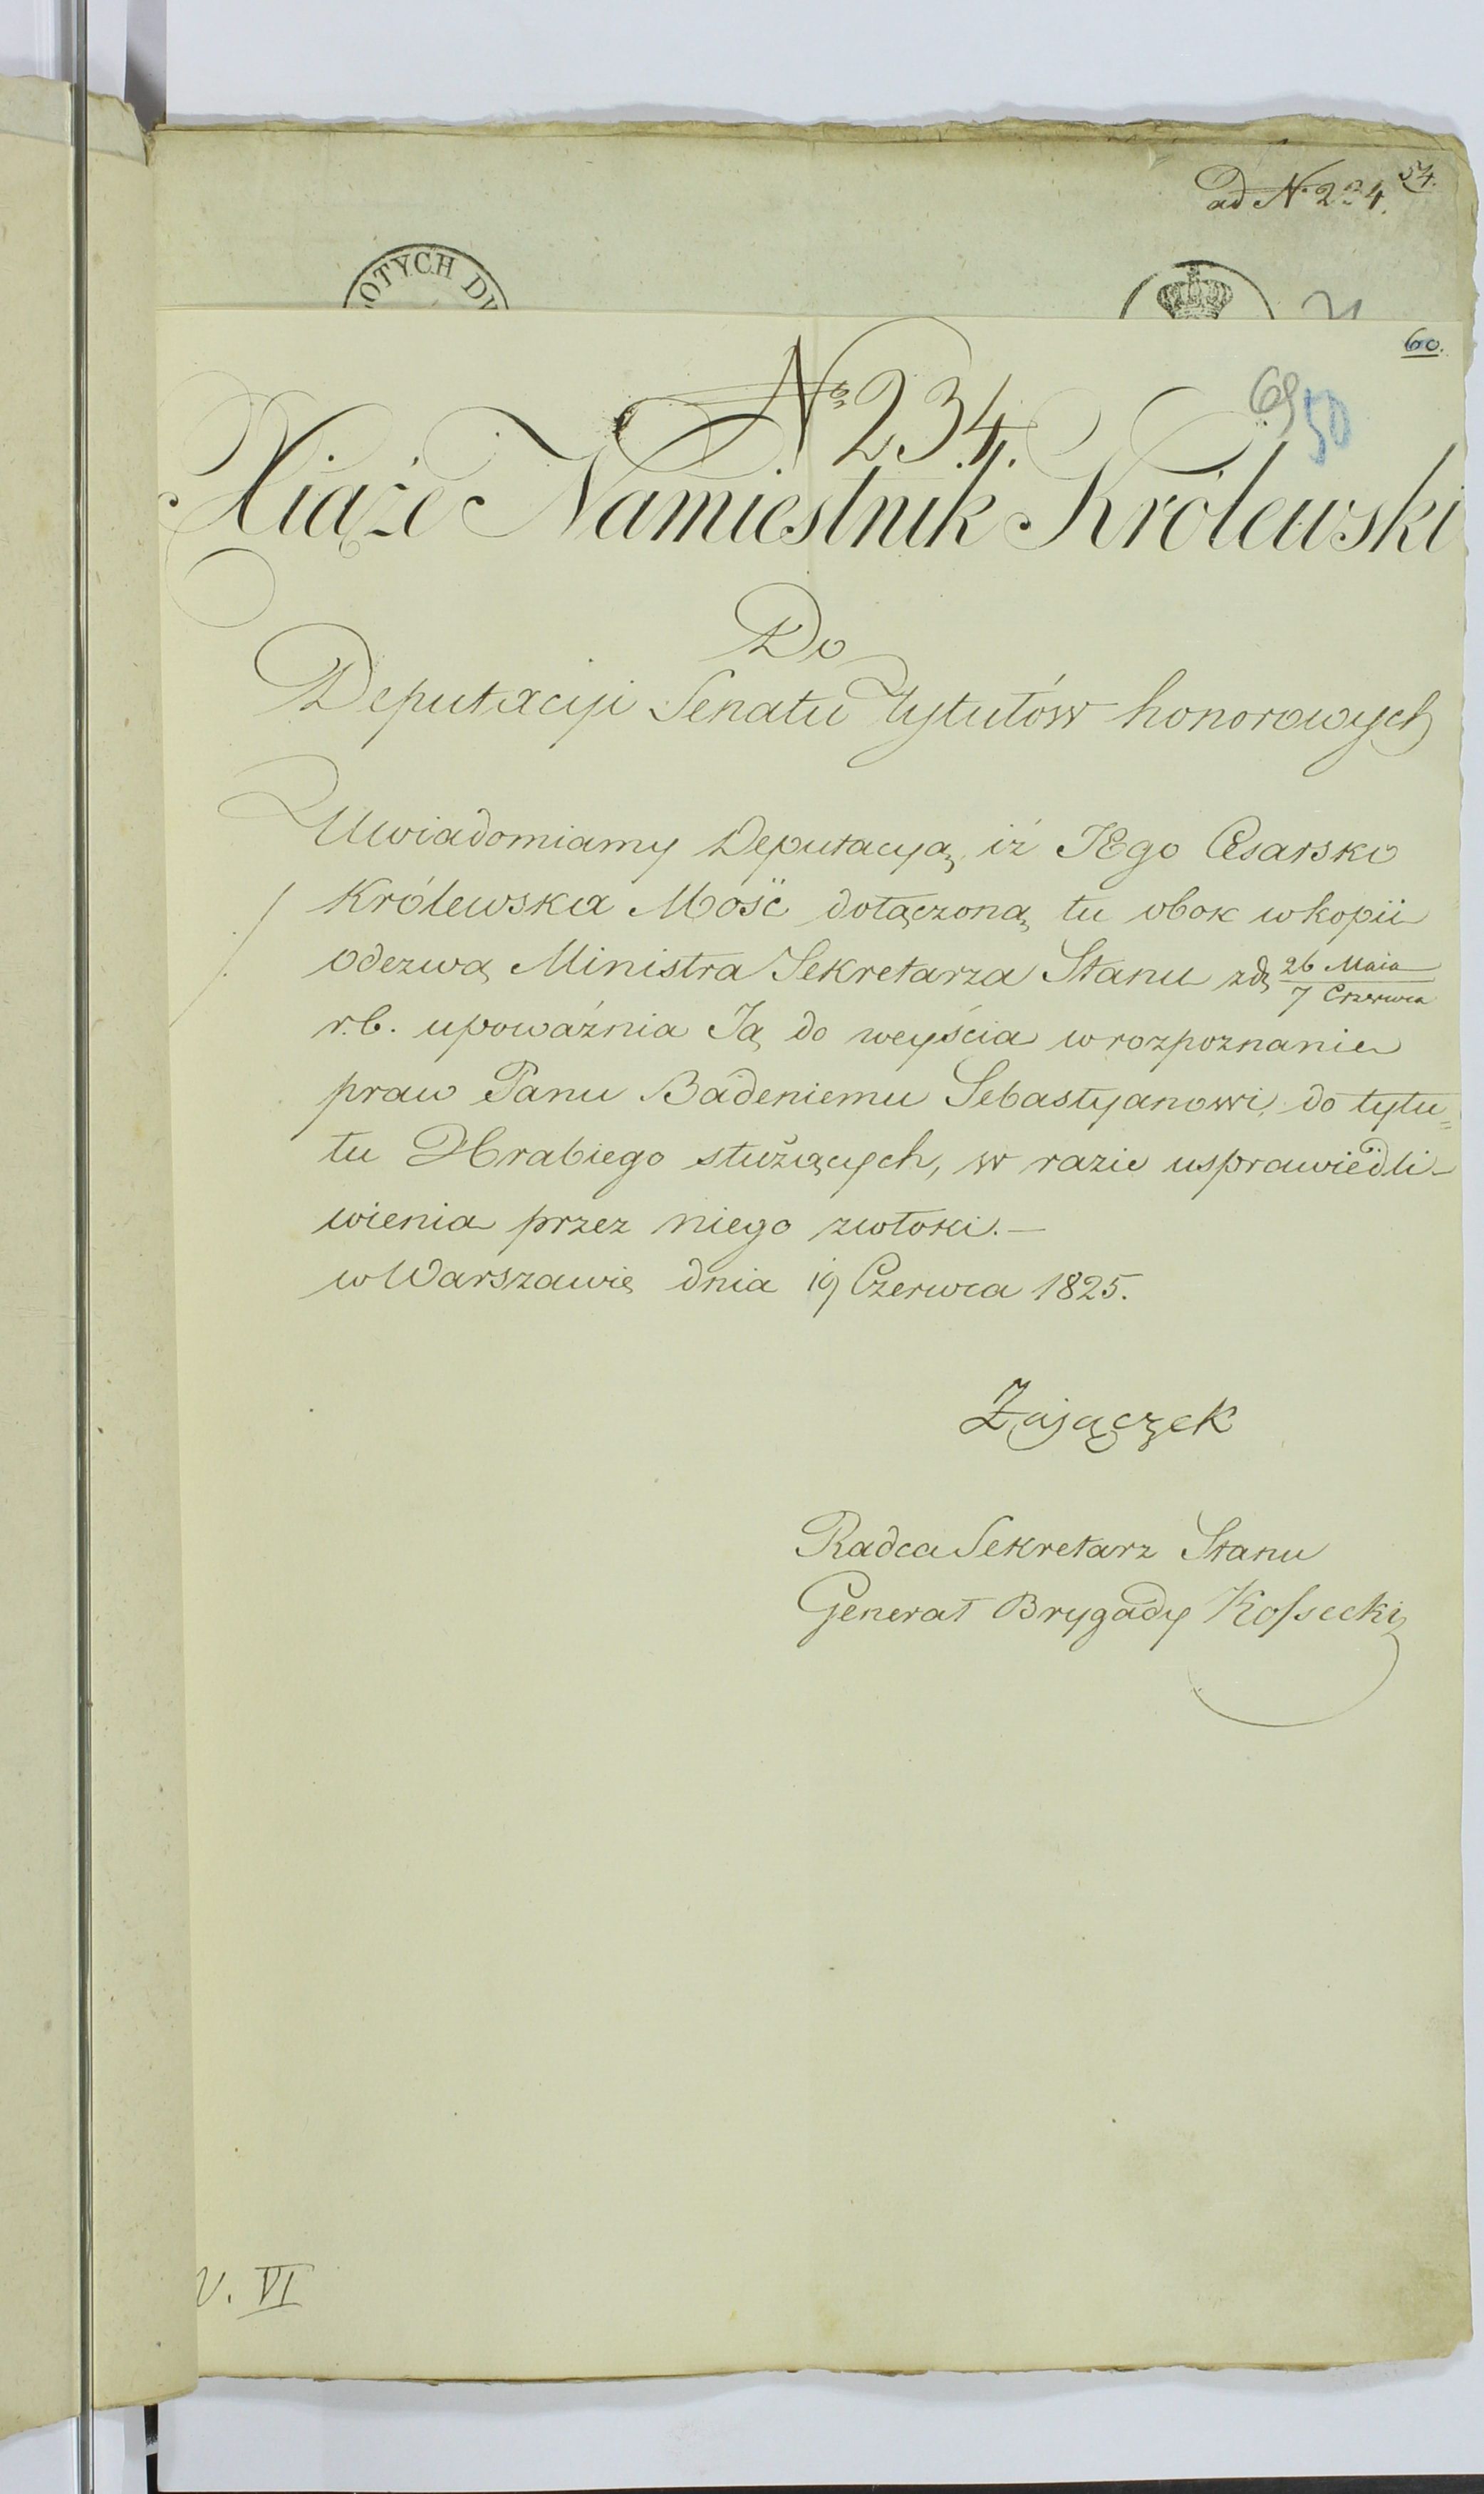 54.
ad No 234.
OTYCH DW
60.
No 234.
69 50
Xiąże Namiestnik Królewski
Do
Deputacyi Senatu Tytułów honorowych
Uwiadomiamy Deputacyą, iż JEgo Cesarsko
Królewska Mość dołączoną tu obok w kopii
odezwą Ministra Sekretarza Stanu z d. 26 Maia / 7 Czerwca
r.b. upoważnia Ją do weyścia w rozpoznanie
praw Panu Badeniemu Sebastyanowi, do tytu=
łu Hrabiego służących, w razie usprawiedli-
wienia przez niego zwłoki.—
w Warszawie dnia 19 Czerwca 1825.
Zajączek
Radca Sekretarz Stanu
Generał Brygady Kossecki
V. VI